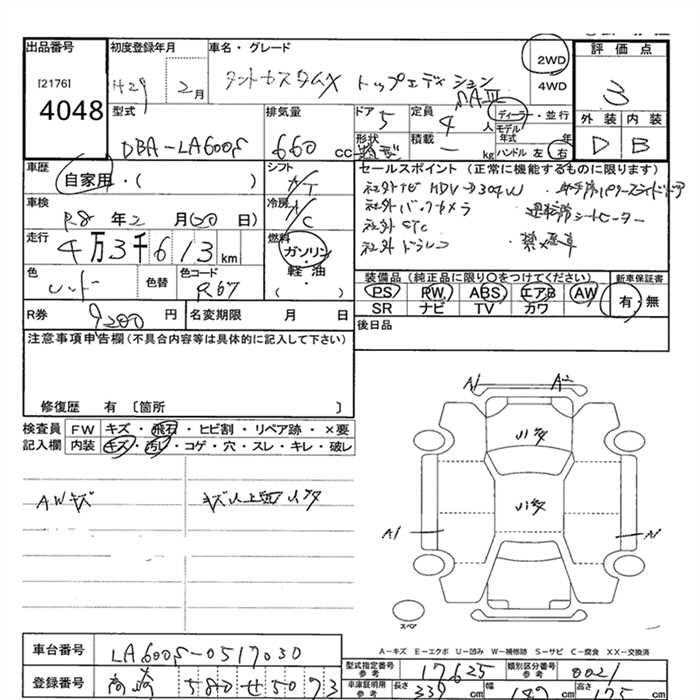 出品番号
[2176]
4048
初度登録年月
H29 2月
車名・グレード
タントカスタムX トップエディション
SAⅢ
2WD
4WD
評価点
3
外装 内装
D B
型式
DBA-LA600S
排気量
660 cc
ドア
5
定員
4 人
ディーラー・並行
モデル年式 年
形状
積載
- kg
ハンドル 左 右
車歴
自家用・( )
シフト
AT
車検
R8 年 2 月(20 日)
冷房
A/C
走行
4万3千613 km
燃料
ガソリン・
軽油・
( )
色
レッド
色替
色コード
R67
R券
9200 円
名変期限 月 日
セールスポイント (正常に機能するものに限ります)
社外ナビ HDV-304W
社外バックカメラ
運転席シートヒーター
社外ETC
社外ドラレコ
・禁煙車
装備品 (純正品に限り○をつけてください)
新車保証書
PS PW ABS エアB AW
SR ナビ TV カワ
有・無
後日品
注意事項申告欄(不具合内容等は具体的に記入して下さい)
修復歴 有 〔箇所 〕
検査員 FW キズ・飛石・ヒビ割・リペア跡・×要
記入欄 内装 キズ・汚レ・コゲ・穴・スレ・キレ・破レ
AWキズ
A1 A2
A1 A1
スペア
A-キズ E-エクボ U-凹み W-補修跡 S-サビ C-腐食 XX-交換済
車台番号
LA600S-0517030
型式指定番号
参考
17625
類別区分番号
参考
0021
登録番号
580 せ 5073
車庫証明用
参考
長さ
339 cm
幅
147 cm
高さ
175 cm